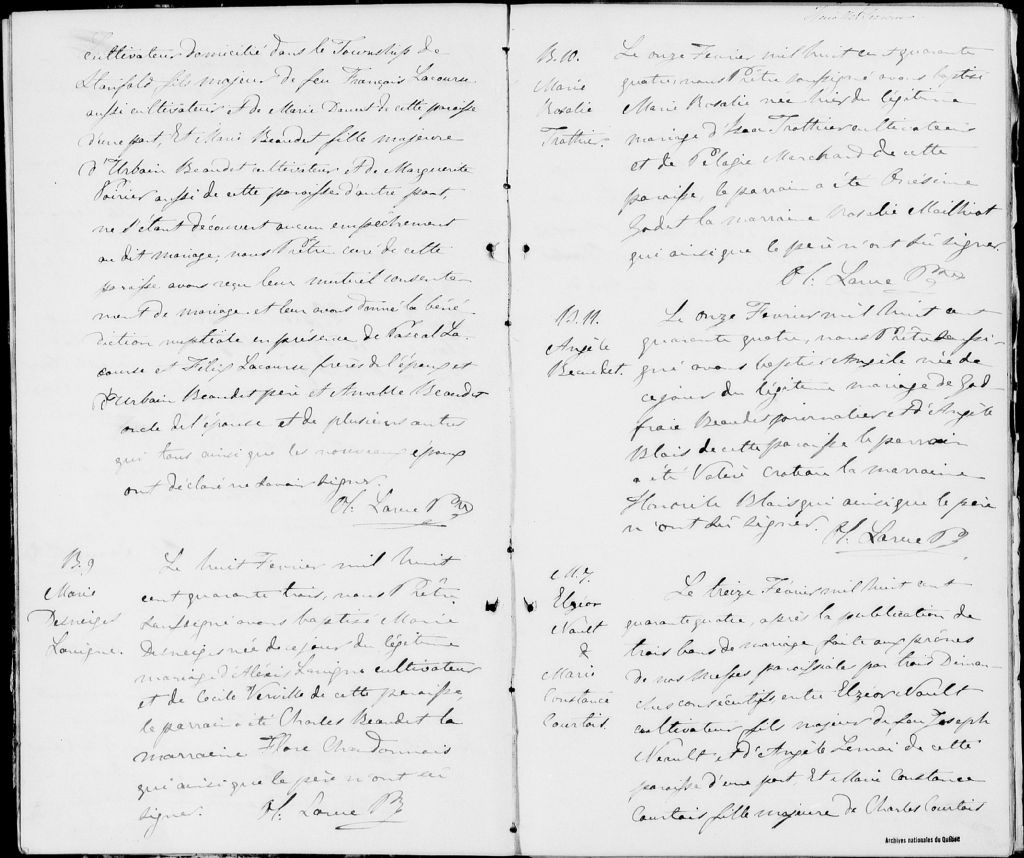 cultivateur domicilié dans le Township de
Stanfold fils majeur de feu François Lacourse
aussi cultivateur et de Marie Danest de cette paroisse
d'une part, Et Marie Beaudet fille majeure
d'Urbain Beaudet cultivateur et de Marguerite
Poirier aussi de cette paroisse d'autre part,
ne s'étant découvert aucun empêchement
au dit mariage; nous Prêtre curé de cette
paroisse avons reçu leur mutuel consente
ment de mariage et leur avons donné la béné
diction nuptiale en présence de Pascal La-
course et Félix Lacourse frères de l'époux et
d'Urbain Beaudet père et Amable Beaudet
oncle de l'épouse et de plusieurs autres
qui tous ainsi que les nouveaux époux
ont déclaré ne savoir signer.
H. Larue Ptre
B.9
Marie
Desneiges
Lavigne.
Le huit Fevrier mil huit
cent quarante trois, nous Prêtre
soussigné avons baptisé Marie
Desneiges née de ce jour du légitime
mariage d'Aléxis Lavigne cultivateur
et de Cecile Verville de cette paroisse
le parrain a été Charles Beaudet la
marraine Flore Chandonnais
qui ainsi que le père n'ont su
signer. H. Larue Ptr
B.10.
Marie
Rosalie
Trottier.
Le onze Fevrier mil huit cent quarante
quatre, nous Prêtre soussigné avons baptisé
Marie Rosalie née hier du légitime
mariage d'Isaa Trottier cultivateur
et de Pélagie Marchand de cette
paroisse, le parrain a été Onésime
Godet la marraine Rosalie Mailhiot
qui ainsi que le père n'ont su signer.
H. Larue Ptre
B.11.
Angèle
Beaudet.
Le onze Fevrier mil huit cent
quarante quatre, nous Prêtre soussi-
gné avons baptisé Angèle née de
ce jour du légitime mariage de God-
froie Beaudet journalier et d'Angèle
Blais de cette paroisse le parrain
a été Valère Croteau la marraine
Honorile Blais qui ainsi que le père
n'ont su signer. H. Larue P
M.7.
Elzéor
Nault
&
Marie
Constance
Courtois
Le treize Févrie mil huit cent
quarante quatre, après la publication de
trois bans de mariage faite aux prônes
de nos messes paroissiale par trois Diman-
ches consécutifs, entre Elzéor Nault
cultivateur fils majeur de feu Joseph
Nault et d'Angèle Lemai de cette
paroisse d'une part Et Marie Constance
Courtois fille majeure de Charles Courtois
Archives nationales du Québec